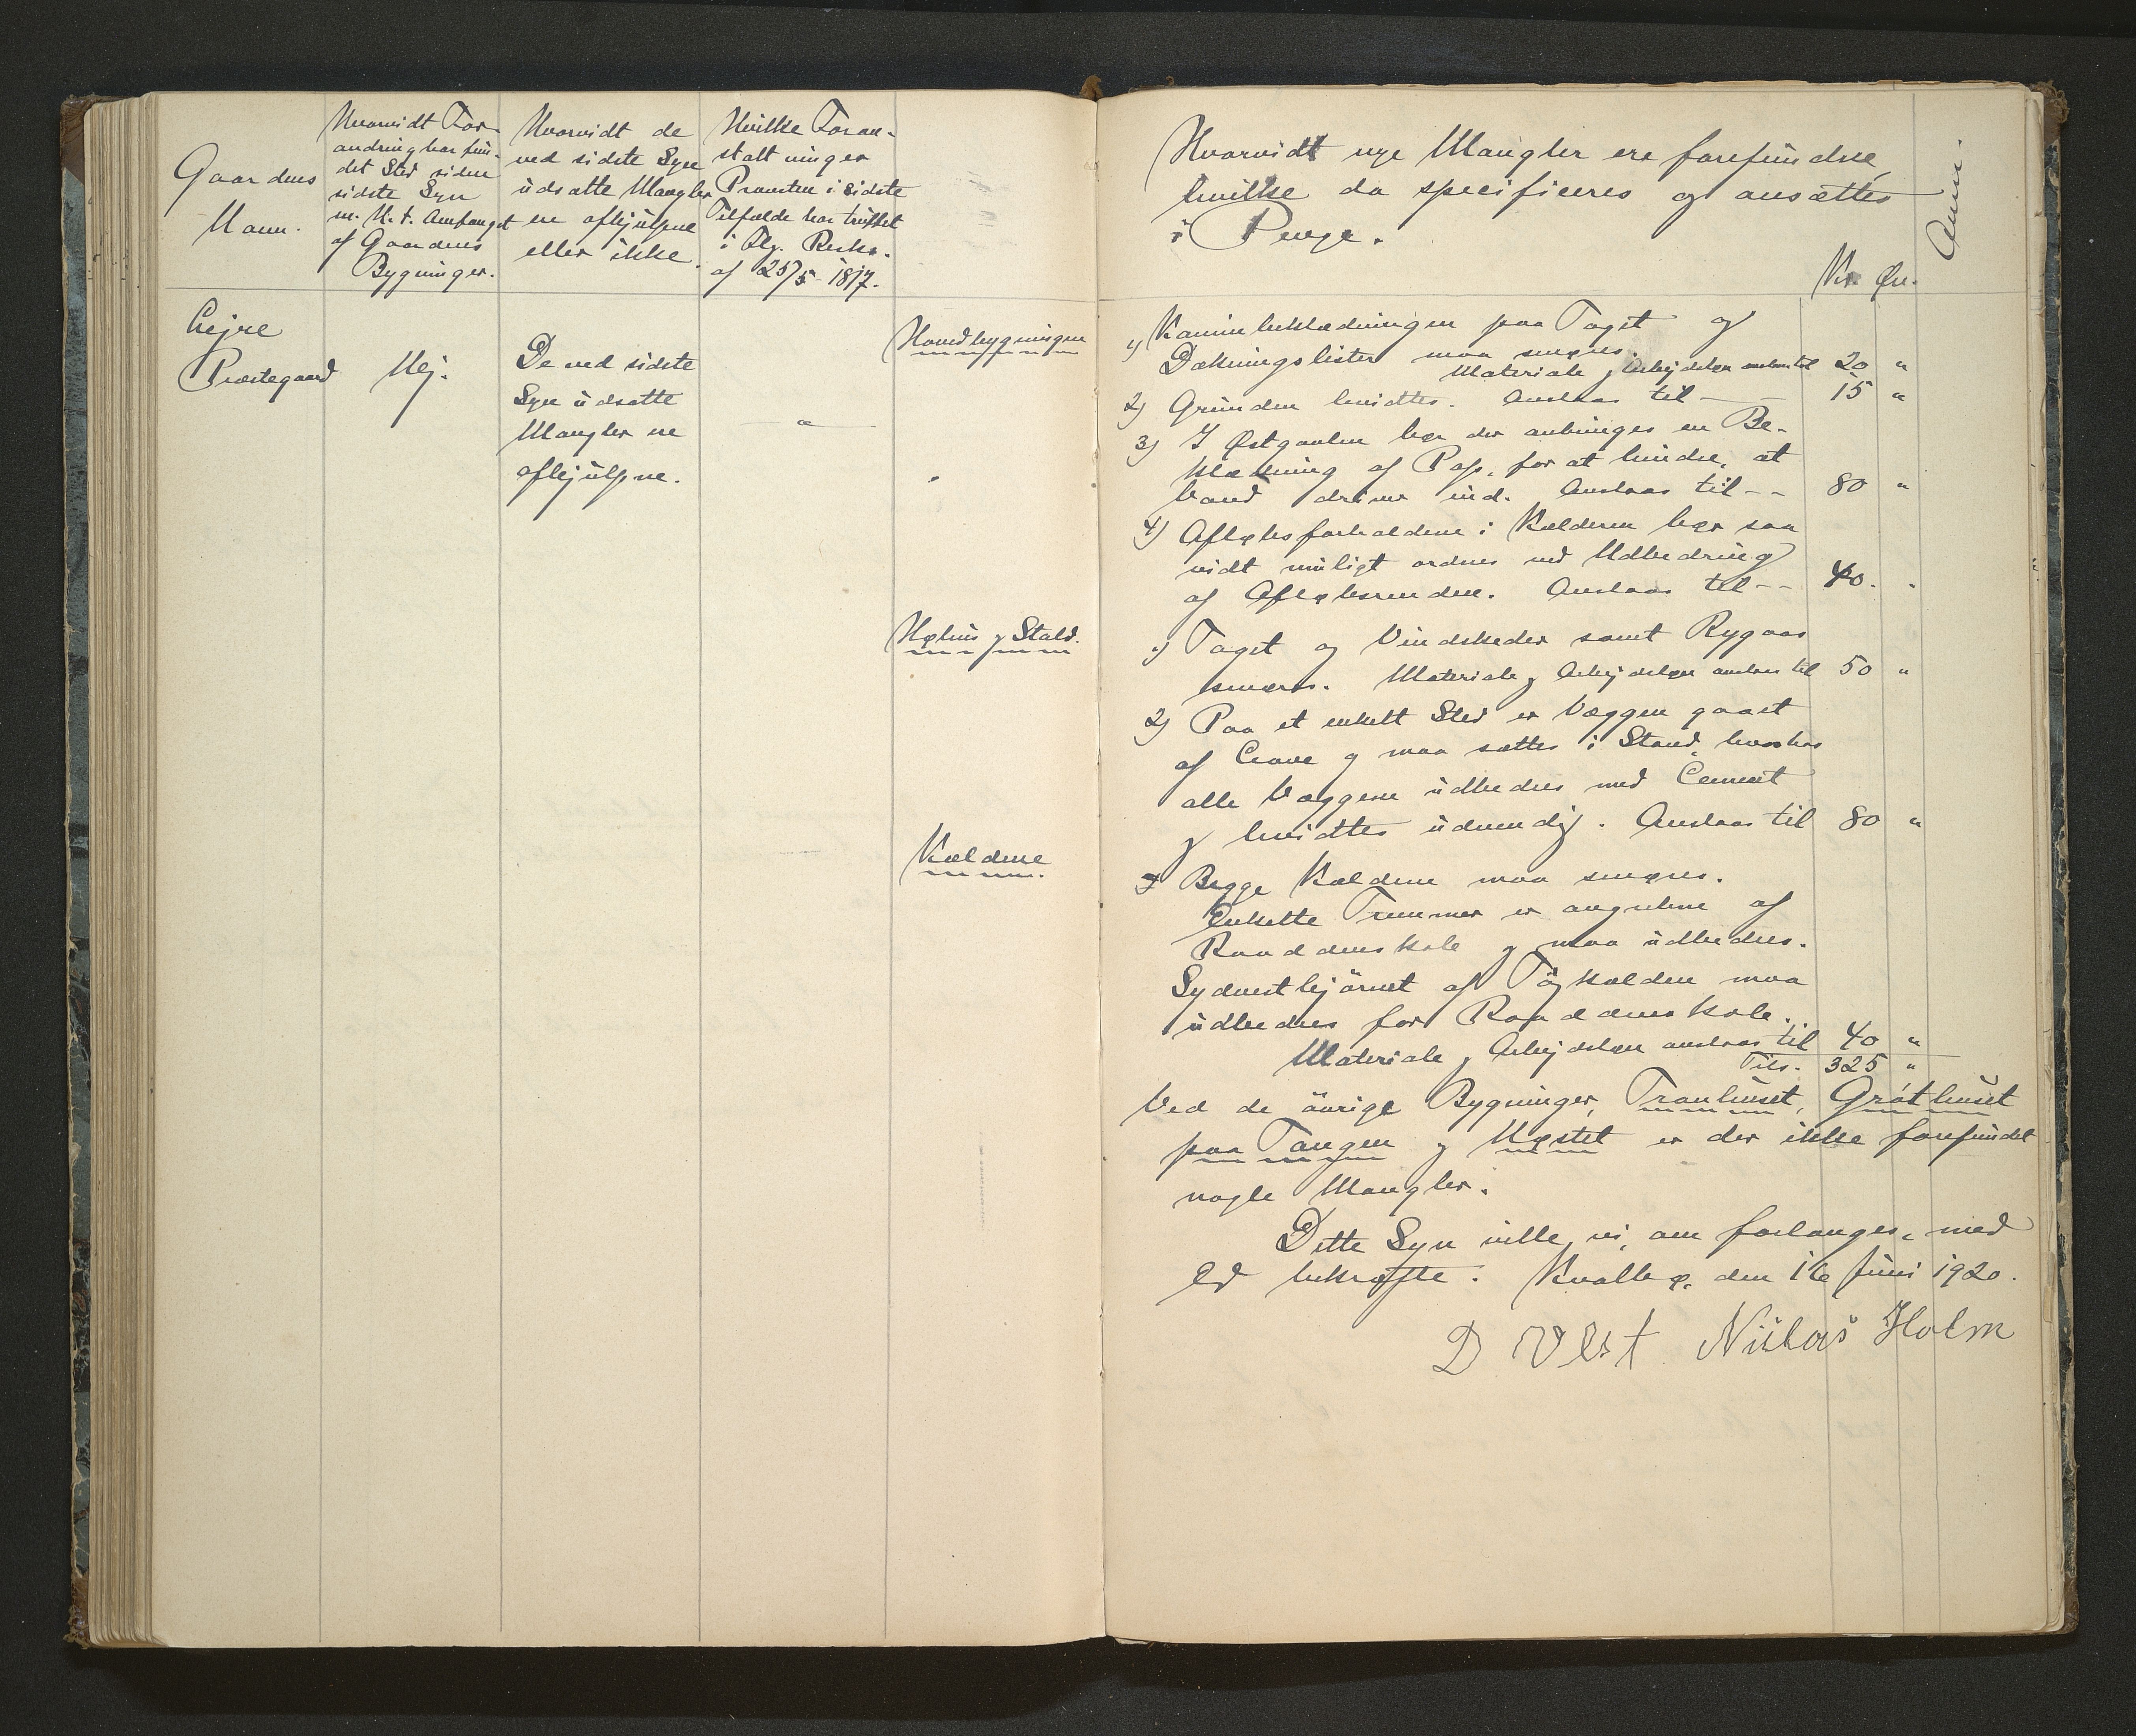 Gaardens
Navn.
Hvorvidt For-
andring har fun-
det Sted siden
sidste Syn
m. H. t. Omfanget
af Gaardens
Bygninger.
Hvorvidt de
ved sidste Syn
udsatte Mangler
ere afhjulpne
eller ikke.
Hvilke Foran-
staltninger
Provsten i sidste
Tilfælde har truffet
i Flg. Reskr.
af 25/5 1817.
Lejre
Præstegaard
Nej.
De ved sidste
Syn udsatte
Mangler ere
afhjulpne.
"
Hovedbygningen
Høhus og Stald.
Kældene
Hvorvidt nye Mangler ere forefundne,
hvilke da specificeres og ansættes
i Penge.
Kr. Øre.
Anm.
1) Kaminbeklædningen paa Taget og
Dækningslister maa smøres.
Materiale og Arbejdsløn anslaas til 20 "
2) Grunden hvidtes. Anslaas til — 15 "
3) I Østgavlen bør der anbringes en Be-
klædning af Pap, for at hindre, at
Vand driver ind. Anslaas til -- 80 "
4) Afløbsforholdene i Kælderen bør saa
vidt muligt ordnes ved Udbedring
af Afløbsrenden. Anslaas til -- 40. "
1) Taget og Vindskeder samt Rygaas
smøres. Materiale og Arbejdsløn anslaas til 50 "
2) Paa et enkelt Sted er Væggen gaaet
af Lave og maa sættes i Stand, hvorhos
alle Væggene udbedres med Cement
og hvidtes udvendig. Anslaas til 80 "
Begge Kældene maa smøres.
Enkelte Tremmer er angrebne af
Raaddenskab og maa udbedres.
Sydvesthjörnet af Tögkælden maa
udbedres for Raaddenskab.
Materiale og Arbejdsløn anslaas til 40 "
Tils. 325 "
Ved de övrige Bygninger, Tranhuset, Gróthuset
paa Tangen og Nøstet er der ikke forefundet
nogle Mangler.
Dette Syn ville vi, om forlanges, med
Ed bekræfte. Kvalbø, den 16 Juni 1920.
D Vest Niklas Holm